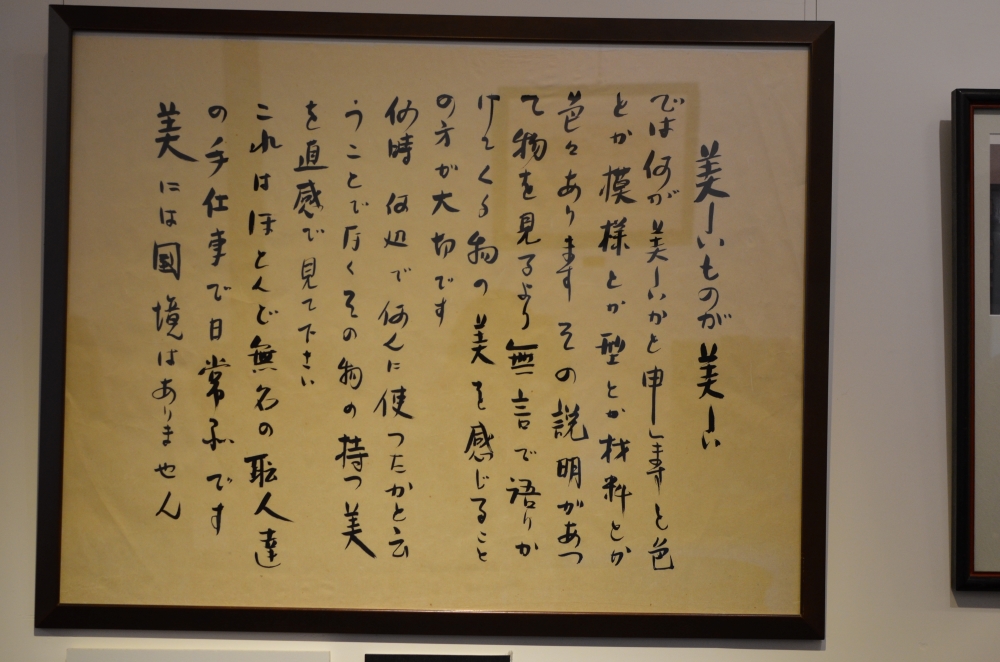 美しいものが美しい
では何が美しいかと申しますと色
とか模様とか型とか材料とか
色々あります その説明があつ
て物を見るより無言で語りか
けてくる物の美を感じること
の方が大切です
何時 何処で何んに使つたかと云
うことでなくその物の持つ美
を直感で見て下さい
これはほとんど無名の耺人達
の手仕事で日常品です
美には國境はありません